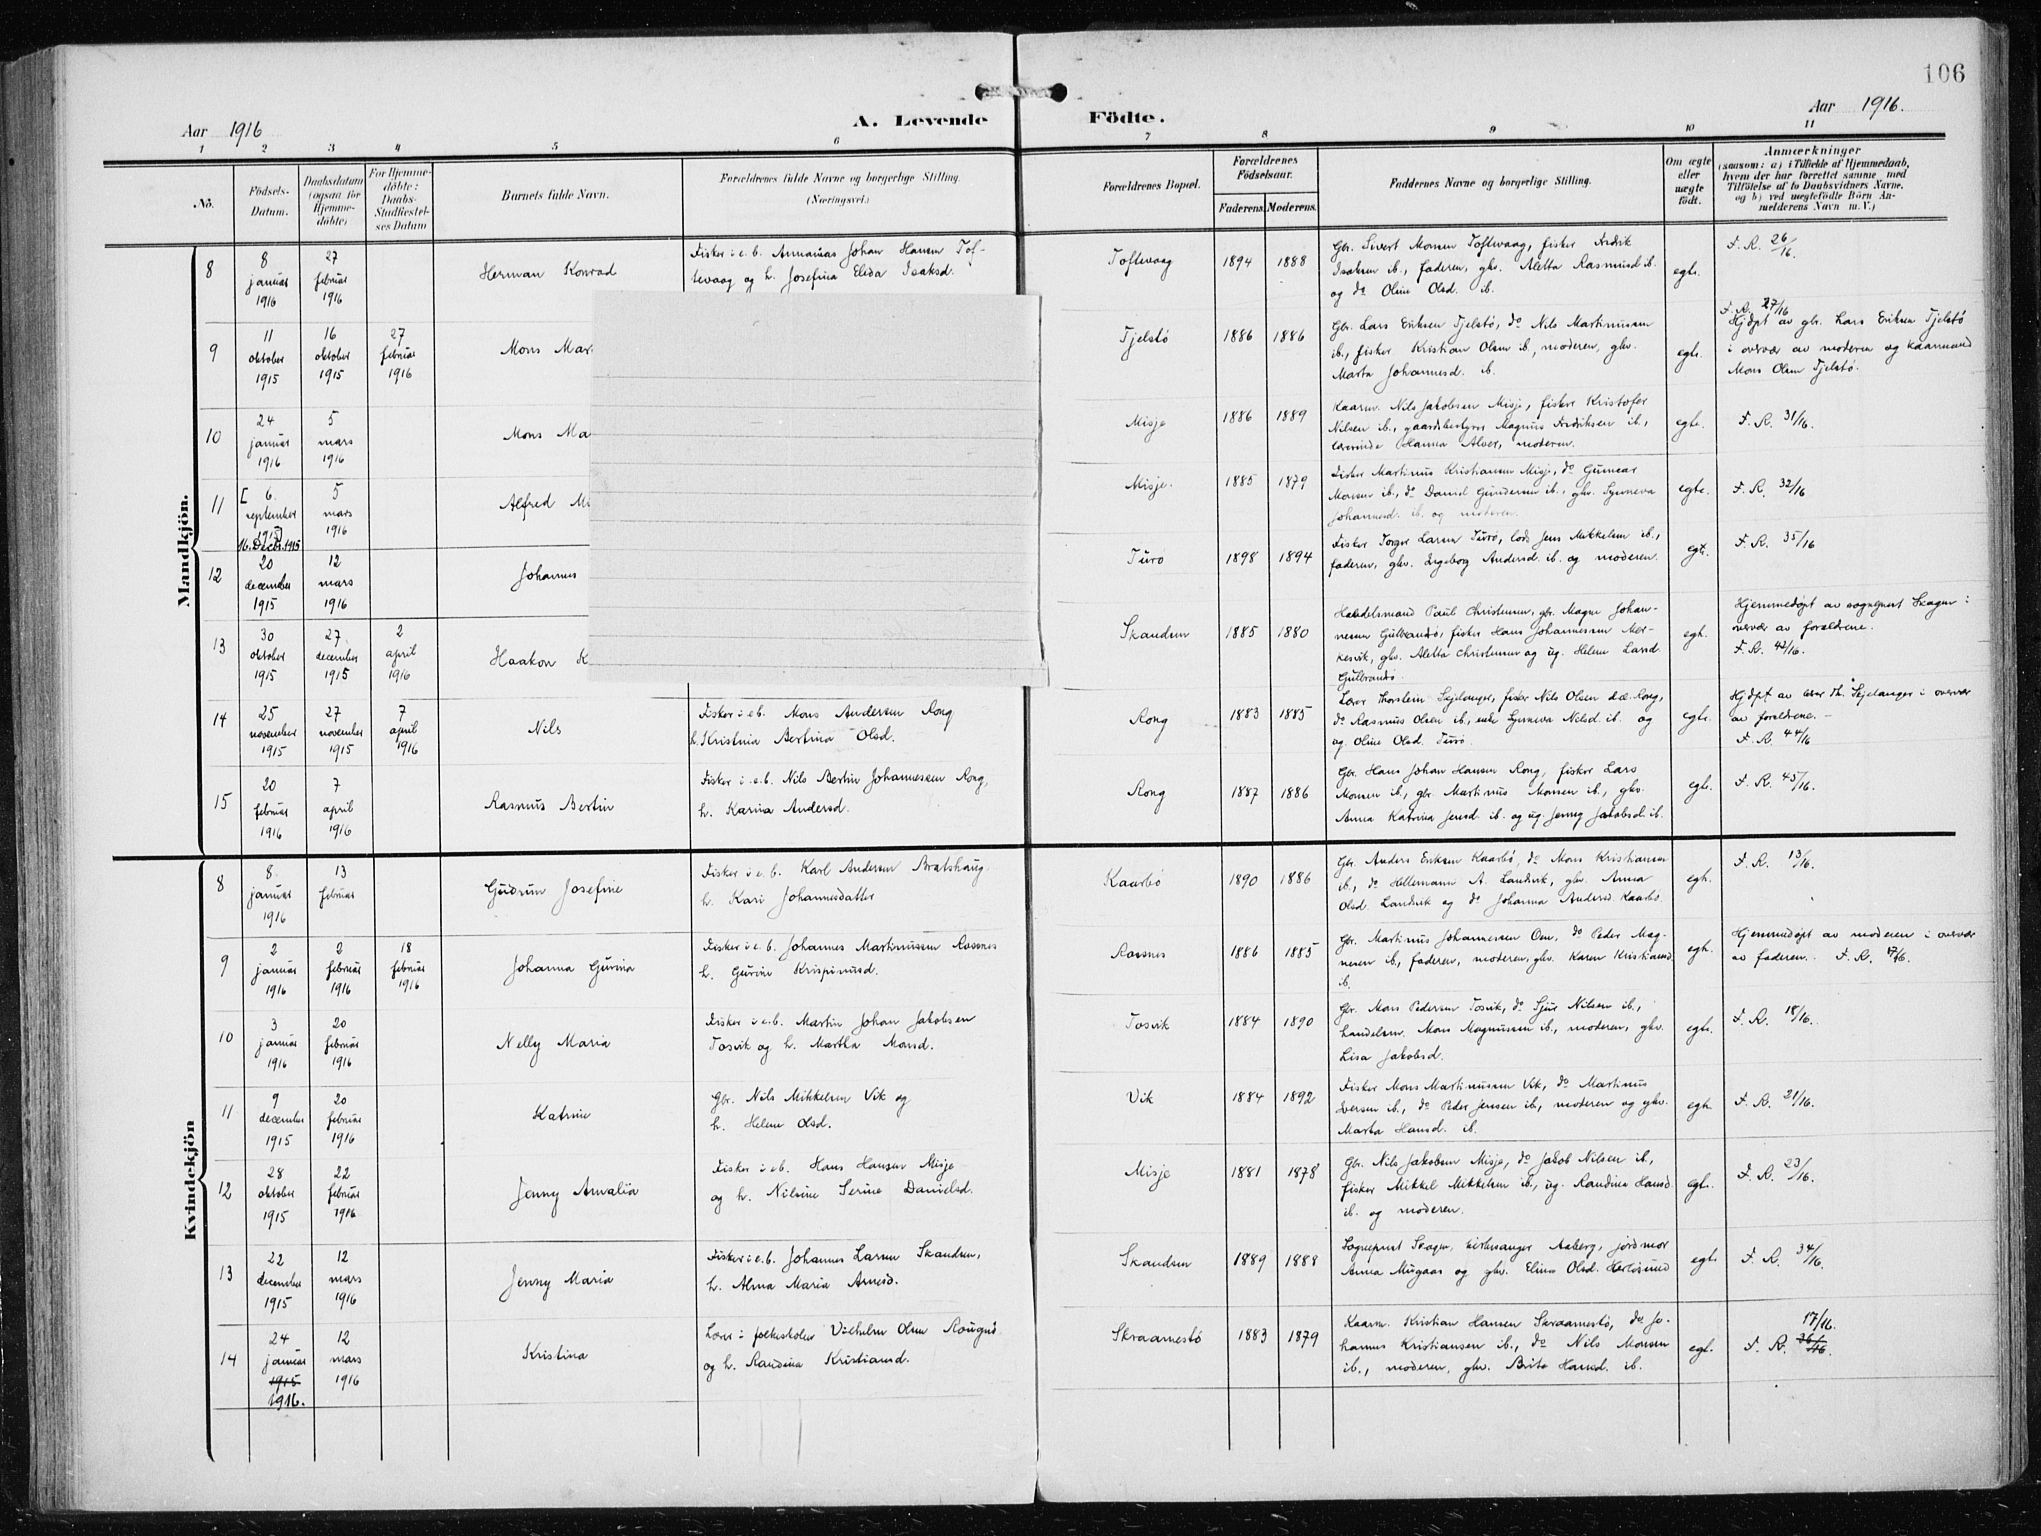 106
Aar 1916
A. Levende Födte.
Aar 1916.
1 2 3 4 5 6 7 8 9 10 11
No.
Födsels-
Datum.
Daabsdatum
(ogsaa for
Hjemme-
döbte)
For Hjemme-
döbte:
Daabs-
Stadfæstel-
ses Datum
Barnets fulde Navn.
Forældrenes fulde Navne og borgerlige Stilling.
(Næringsvei.)
Forældrenes Bopæl.
Forældrenes
Födselsaar.
Faderens. Moderens.
Faddernes Navne og borgerlige Stilling.
Om ægte
eller
uægte
født.
Anmærkninger
(saasom: a) i Tilfælde af Hjemmedaab,
hvem der har forrettet samme, med
Tilföielse af to Daabsvidners Navne,
og b) ved uægtefödte Börn An-
melderens Navn m. V.)
Mandkjön.
8
8 januar 1916
27 februar 1916
Herman Konrad
Fisker i e. b. Annanias Johan Hansen Tof-
tevaag og h. Josefina Elida Isaksd.
Toftevaag
1894 1888
Gbr. Sivert Monsen Toftevaag, fisker Fredrik
Isaksen ib., faderen, ghv. Aletta Rasmusd. ib.
og do Oline Olsd. ib.
egte.
F. R. 26/16.
9
11 oktober 1915
16 oktober 1915
27 februar 1916
Mons Mar
Tjelstø
1886 1886
Gbr. Lars Eriksen Tjelstø, do Nils Martinussen
ib., fisker Kristian Olsen ib., moderen, ghv.
Marta Johannesd. ib.
egte.
F. R. 27/16
Hjdpt av gbr. Lars Eriksen Tjelstø
i overvær av moderen og kaarmand
Mons Olsen Tjelstø.
10
24 januar 1916
5 mars 1916
Mons Ma
Misje
1886 1889
Kaarm. Nils Jakobsen Misje, fisker Kristofer
Nilsen ib., gaardsbestyrer Magnus Fredriksen ib.,
lærerinde Hanna Alver, moderen.
egte.
F. R. 31/16.
11
[6. september 1915]
16. Decbr. 1915
5 mars 1916
Alfred Mi
Misje.
1885 1879
Fisker Martinus Kristiansen Misje, do Gunnar
Monsen ib., do Daniel Gundersen ib., ghv. Synneva
Johannesd. ib. og moderen.
egte.
F. R. 32/16
12
20 december 1915
12 mars 1916
Johannes
Turo
1898 1894
Fisker Torger Larsen Turö, lods Jens Mikkelsen ib.,
faderen, ghv. Ingeborg Andersd. ib. og moderen.
egte.
F. R. 35/16
13
30 oktober 1915
27 december 1915
2 april 1916
Haakon K
Skandsen
1885 1880
Handelsmand Paul Christensen, gbr. Magne Johan-
nessen Gulbrandsö, fisker Hans Johannessen Mer-
kesvik, ghv. Aletta Christensen og ug. Helene Larsd.
Gulbrandsö.
egte.
Hjemmedøpt av sogneprest Skagen i
overvær av forældrene.
F. R. 42/16.
14
25 november 1915
27 november 1915
7 april 1916
Nils
Fisker i e. b. Mons Andersen Rong
h. Kristina Bertina Olsd.
Rong
1883 1885
Lærer Thorstein Skjelanger, fisker Nils Olsen d.æ. Rong,
do Rasmus Olsen ib., enke Synneva Nilsd. ib. og
ug. Oline Olsd. Turö.
egte.
Hjdpt av lærer Th. Skjelanger i overvær
av forældrene.
F. R. 44/16
15
20 februar 1916
7 april 1916
Rasmus Bertin
Fisker i e. b. Nils Bertin Johannessen Rong,
h. Karina Andersd.
Rong
1887 1886
Gbr. Hans Johan Hansen Rong, fisker Lars
Monsen ib., gbr. Martinus Monsen ib., ghv.
Anna Katrina Jensd. ib. og ug. Jenny Jakobsd. ib.
egte.
F. R. 45/16.
Kvindekjön
8
8. januar 1916
13 februar
Gudrun Josefine
Fisker i e. b. Karl Andersen Bratshaug
h. Kari Johannesdatter
Kaarbö
1890 1886
Gbr. Anders Eriksen Kaarbö, do Mons Kristiansen
ib., do Hellemann A. Landvik, ghv. Anna
Olsd. Landvik og do Johanna Andersd. Kaarbö.
egte.
F. R. 13/16.
9
2 januar 1916
2 februar 1916
18 februar 1916
Johanna Gurina
Fisker i e. b. Johannes Martinussen Rossnes
h. Gurine Krispinusd.
Rossnes
1886 1885
Gbr. Martinus Johannessen Oen, do Peder Mag-
nesen ib., faderen, moderen, ghv. Karen Kristiansd.
ib.
egte.
Hjemmedøpt av moderen i overvær
av faderen. F. R. 17/16.
10
3 januar 1916
20 februar 1916
Nelly Maria
Fisker i e. b. Martin Johan Jakobsen
Tosvik og h. Martha Monsd.
Tosvik
1884 1890
Gbr. Mons Pedersen Tosvik, do Sjur Nilsen ib.,
handelsm. Mons Magnussen ib., moderen, ghv.
Lisa Jakobsd.
egte.
F. R. 18/16.
11
9 december 1915
20 februar 1916
Katrine
Gbr. Nils Mikkelsen Vik og
h. Helene Olsd.
Vik
1884 1892
Fisker Mons Martinussen Vik, do Martinus
Iversen ib., do Peder Jensen ib., moderen og ghv.
Marta Hansd. ib.
egte.
F. R. 21/16.
12
28 oktober 1915
22 februar 1916
Jenny Amalia
Fisker i e. b. Hans Hansen Misje
og h. Nilsine Serine Danielsd.
Misje
1881 1878
Gbr. Nils Jakobsen Misje, do Jakob Nilsen ib.,
fisker Mikkel Mikkelsen ib., ug. Raudina Hansd.
ib. og moderen.
egte.
F. R. 23/16.
13
22 december 1915
12 mars 1916
Jenny Maria
Fisker i e. b. Johannes Larsen Skandsen,
h. Alma Maria Arnesd.
Skandsen
1889 1888
Sogneprest Skagen, kirkesanger Aaberg, jordmor
Anna Mugaas og ghv. Elina Olsd. Herlösund
egte
F. R. 34/16.
14
24 januar 1915 1916.
12 mars 1916
Kristina
Lærer i folkeskolen Vilhelm Olsen
og h. Raudina Kristiansd.
Skraamestö
1883 1879
Kaarm. Kristian Hansen Skraamestö, do Jo-
hannes Kristiansen ib., do Nils Monsen
ib., moderen, ghv. Brite Hansd. ib.
egte.
17/16.
F. R. 36/16.